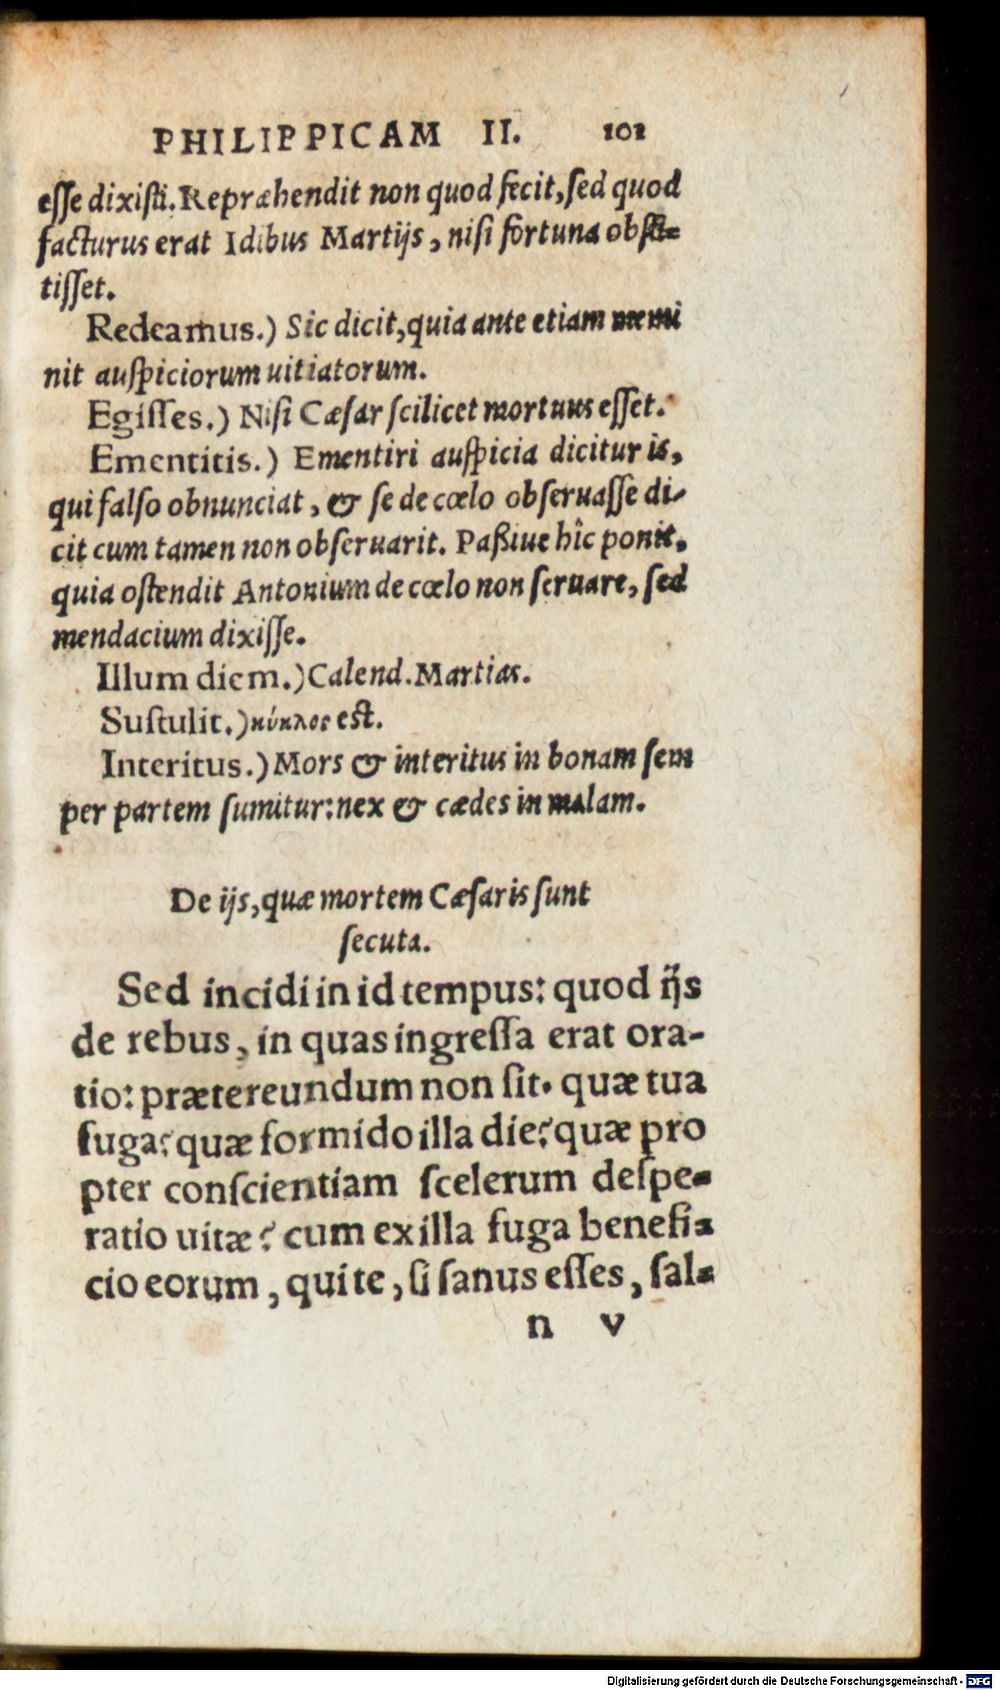 PHILIPPICAM II. 101
esse dixisti. Repræhendit non quod fecit, sed quod
facturus erat Idibus Martijs, nisi fortuna obsti-
tisset.
Redeamus.) Sic dicit, quia ante etiam memi
nit auspiciorum uitiatorum.
Egisses.) Nisi Cæsar scilicet mortuus esset.
Ementitis.) Ementiri auspicia dicitur is,
qui falso obnunciat, & se de cœlo obseruasse di-
cit cum tamen non obseruarit. Paßiue hîc ponit,
quia ostendit Antonium de cœlo non seruare, sed
mendacium dixisse.
Illum diem.) Calend. Martias.
Sustulit.) κύκλος est.
Interitus.) Mors & interitus in bonam sem
per partem sumitur: nex & cædes in malam.
De ijs, quæ mortem Cæsaris sunt
secuta.
Sed incidi in id tempus: quod ijs
de rebus, in quas ingressa erat ora-
tio: prætereundum non sit. quæ tua
fuga? quæ formido illa die? quæ pro
pter conscientiam scelerum despe-
ratio uitæ? cum ex illa fuga benefi-
cio eorum, qui te, si sanus esses, sal-
n v
Digitalisierung gefördert durch die Deutsche Forschungsgemeinschaft - DFG